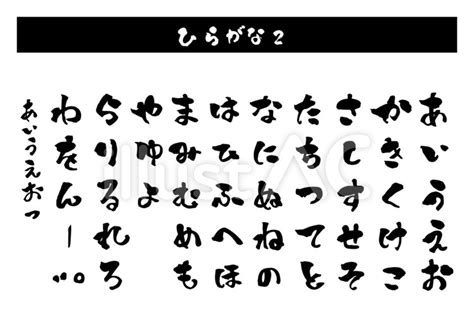 ひらがな２
あいうえお
かきくけこ
さしすせそ
たちつてと
なにぬねの
はひふへほ
まみむめも
やゆよ
らりるれろ
わをんー゛゜
あいうえおつ
illustAC